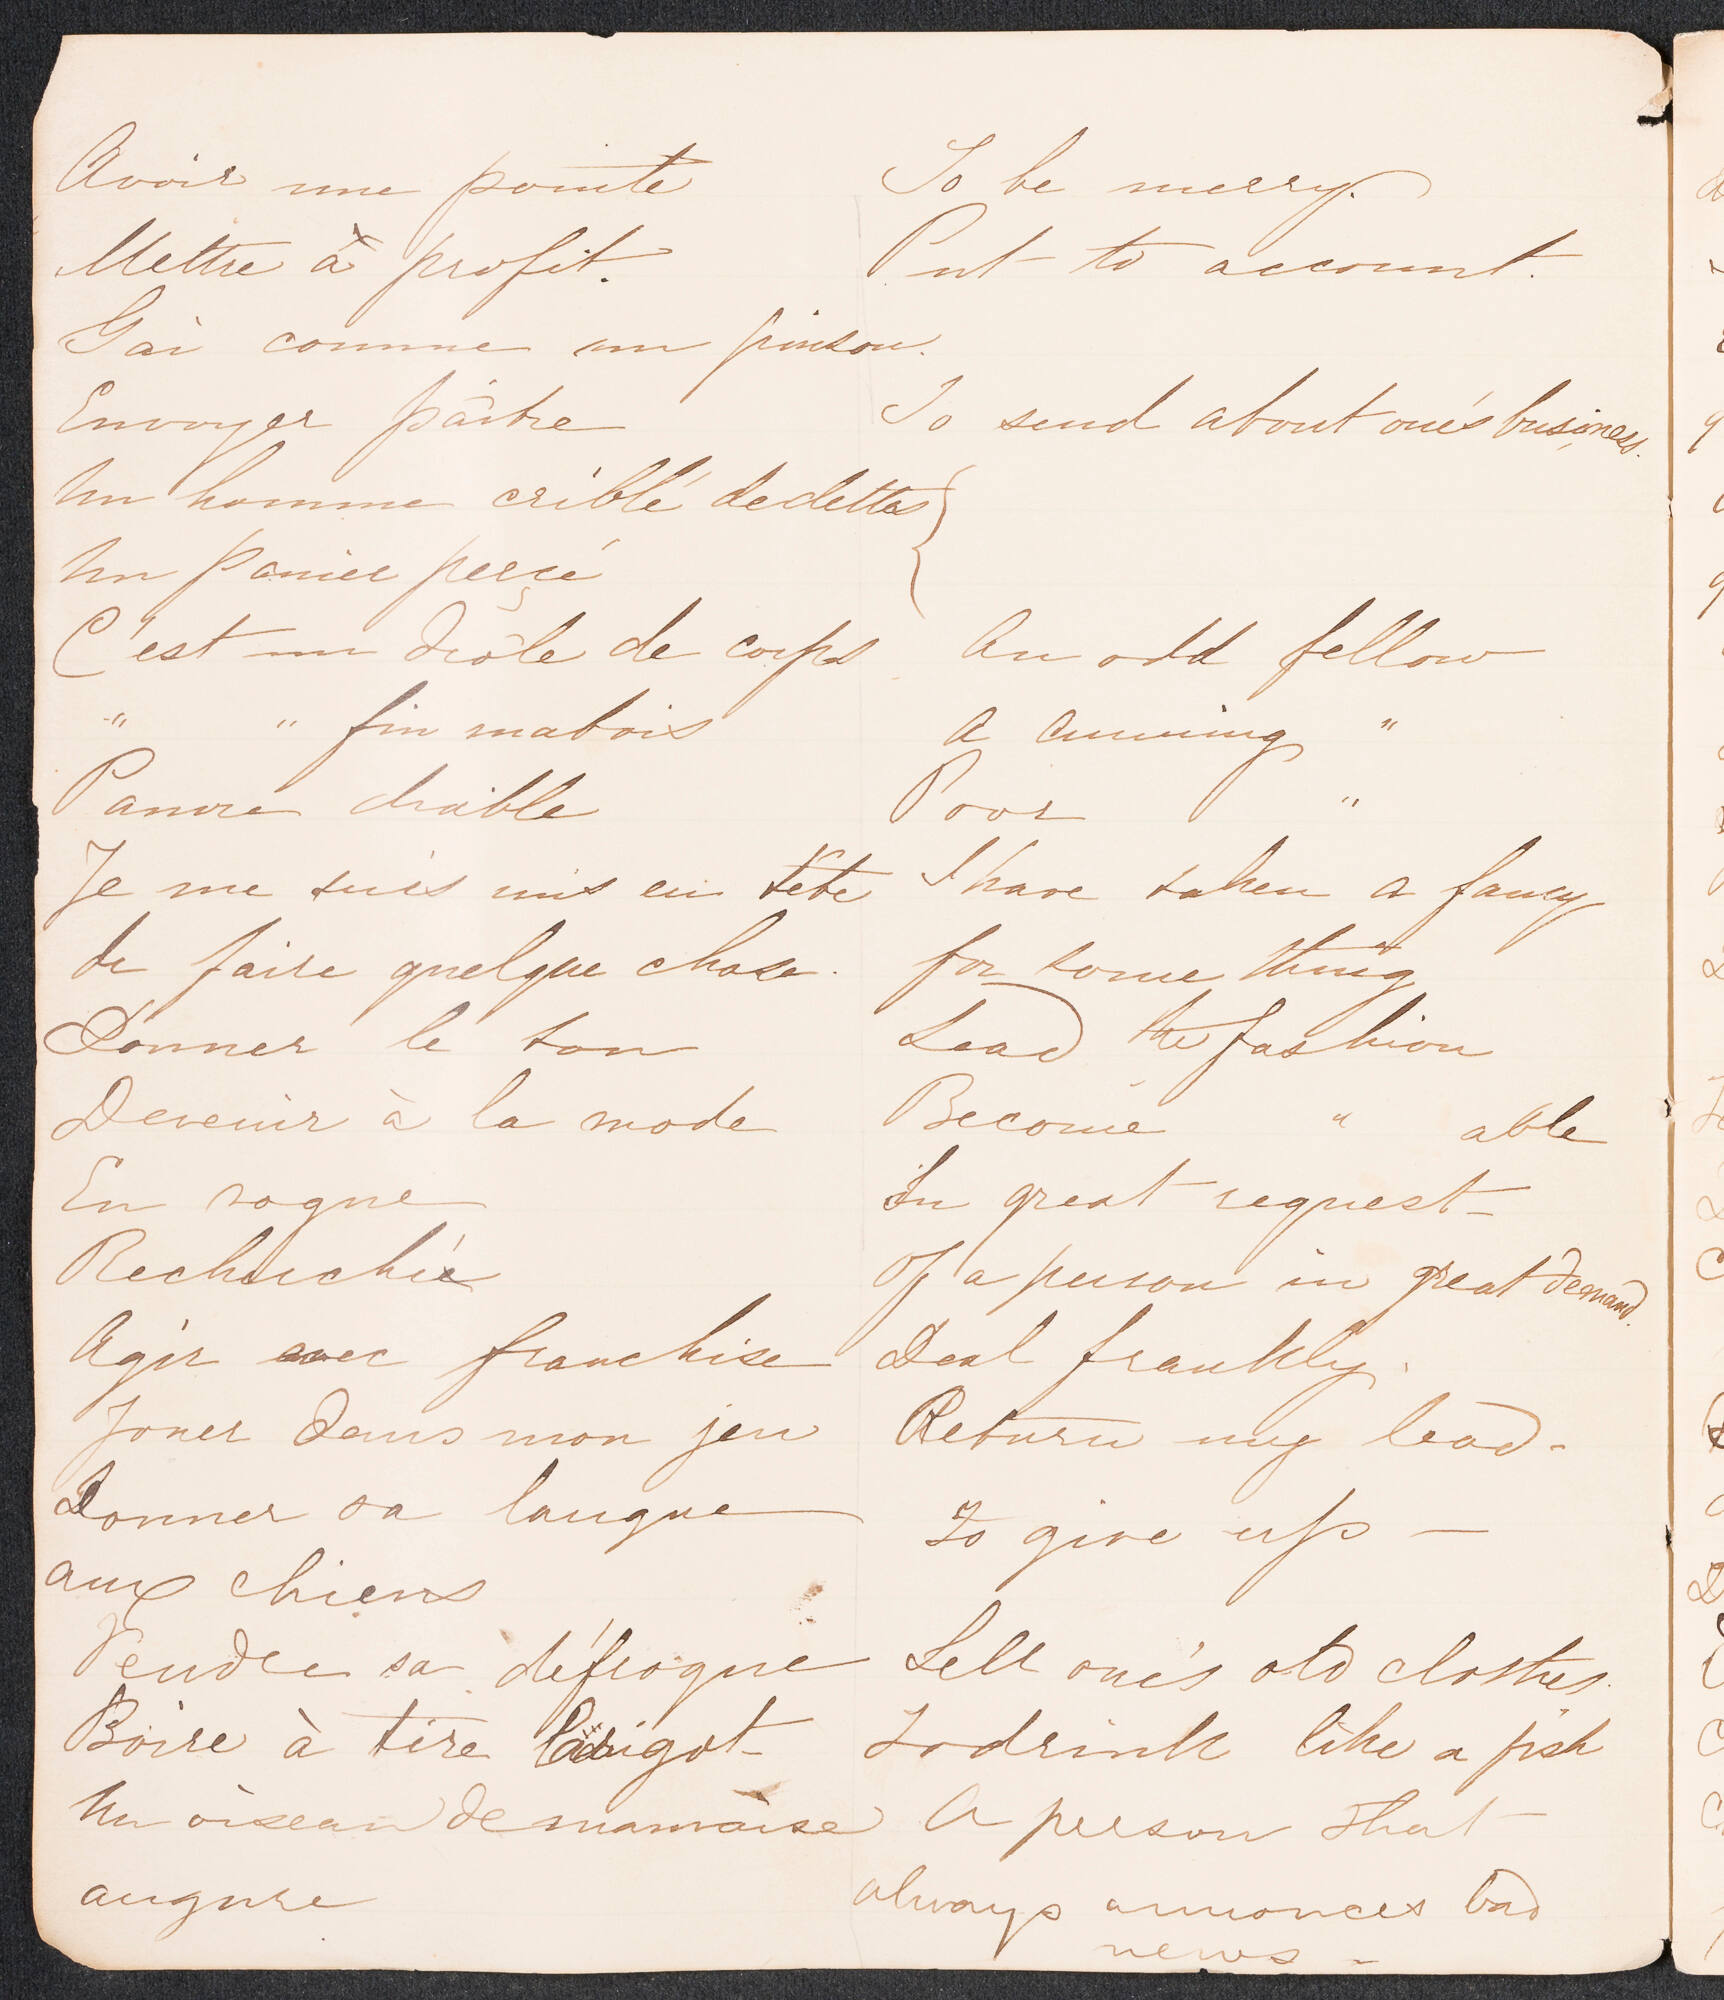 Avoir une pointe To be merry.
Mettre à profit. Put to account.
Gai comme un pinson.
Envoyer paître To send about one's business.
Un homme criblé de dettes
Un panier percé
C'est un drôle de corps An odd fellow
" " fin matois A cunning "
Pauvre diable Poor "
Je me suis mis en tête I have taken a fancy
de faire quelque chose. for some thing
Donner le ton Lead the fashion
Devenir à la mode Become " able
En vogue In great request -
Recherchée Of a person in great demand.
Agir avec franchise Deal frankly.
Jouer dans mon jeu Return my lead -
Donner sa langue To give up -
aux chiens
Vendre sa défroque Sell one's old clothes.
Boire à tire Larigot - To drink like a fish
Un oiseau de mauvaise A person that
augure always annonces bad
news -